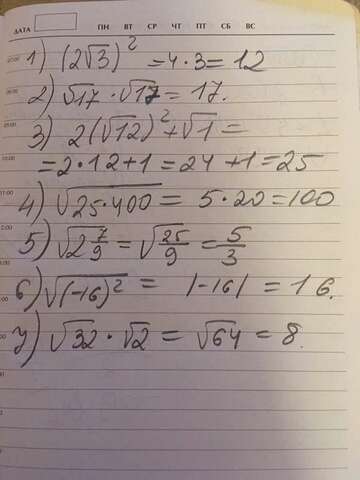 ДАТА ПН ВТ СР ЧТ ПТ СБ ВС
1) (2√3)² = 4·3 = 12
2) √17 · √17 = 17.
3) 2(√12)² + √1 =
= 2·12+1 = 24+1 = 25
4) √25·400 = 5·20 = 100
5) √2 7/9 = √25/9 = 5/3
6) √(-16)² = |-16| = 16.
7) √32 · √2 = √64 = 8.